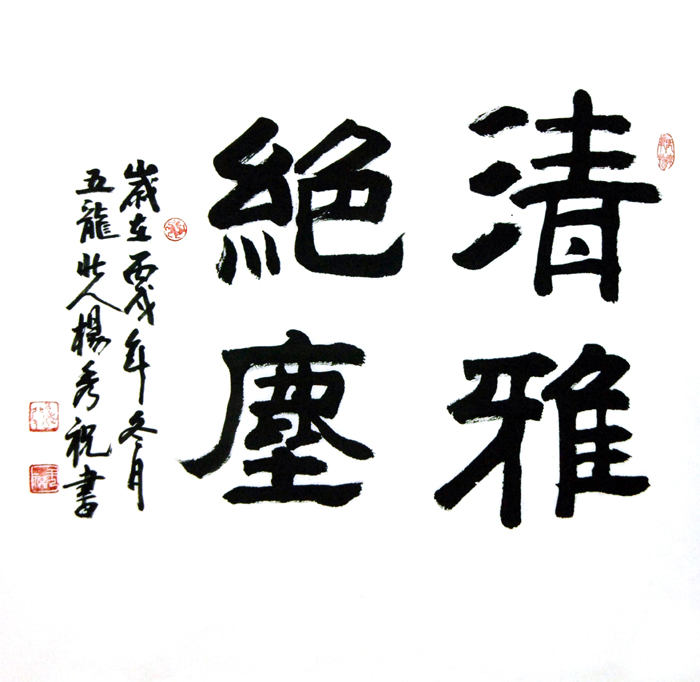 清雅
絶塵
歲在丙戌年冬月
五龍山人楊秀祝書